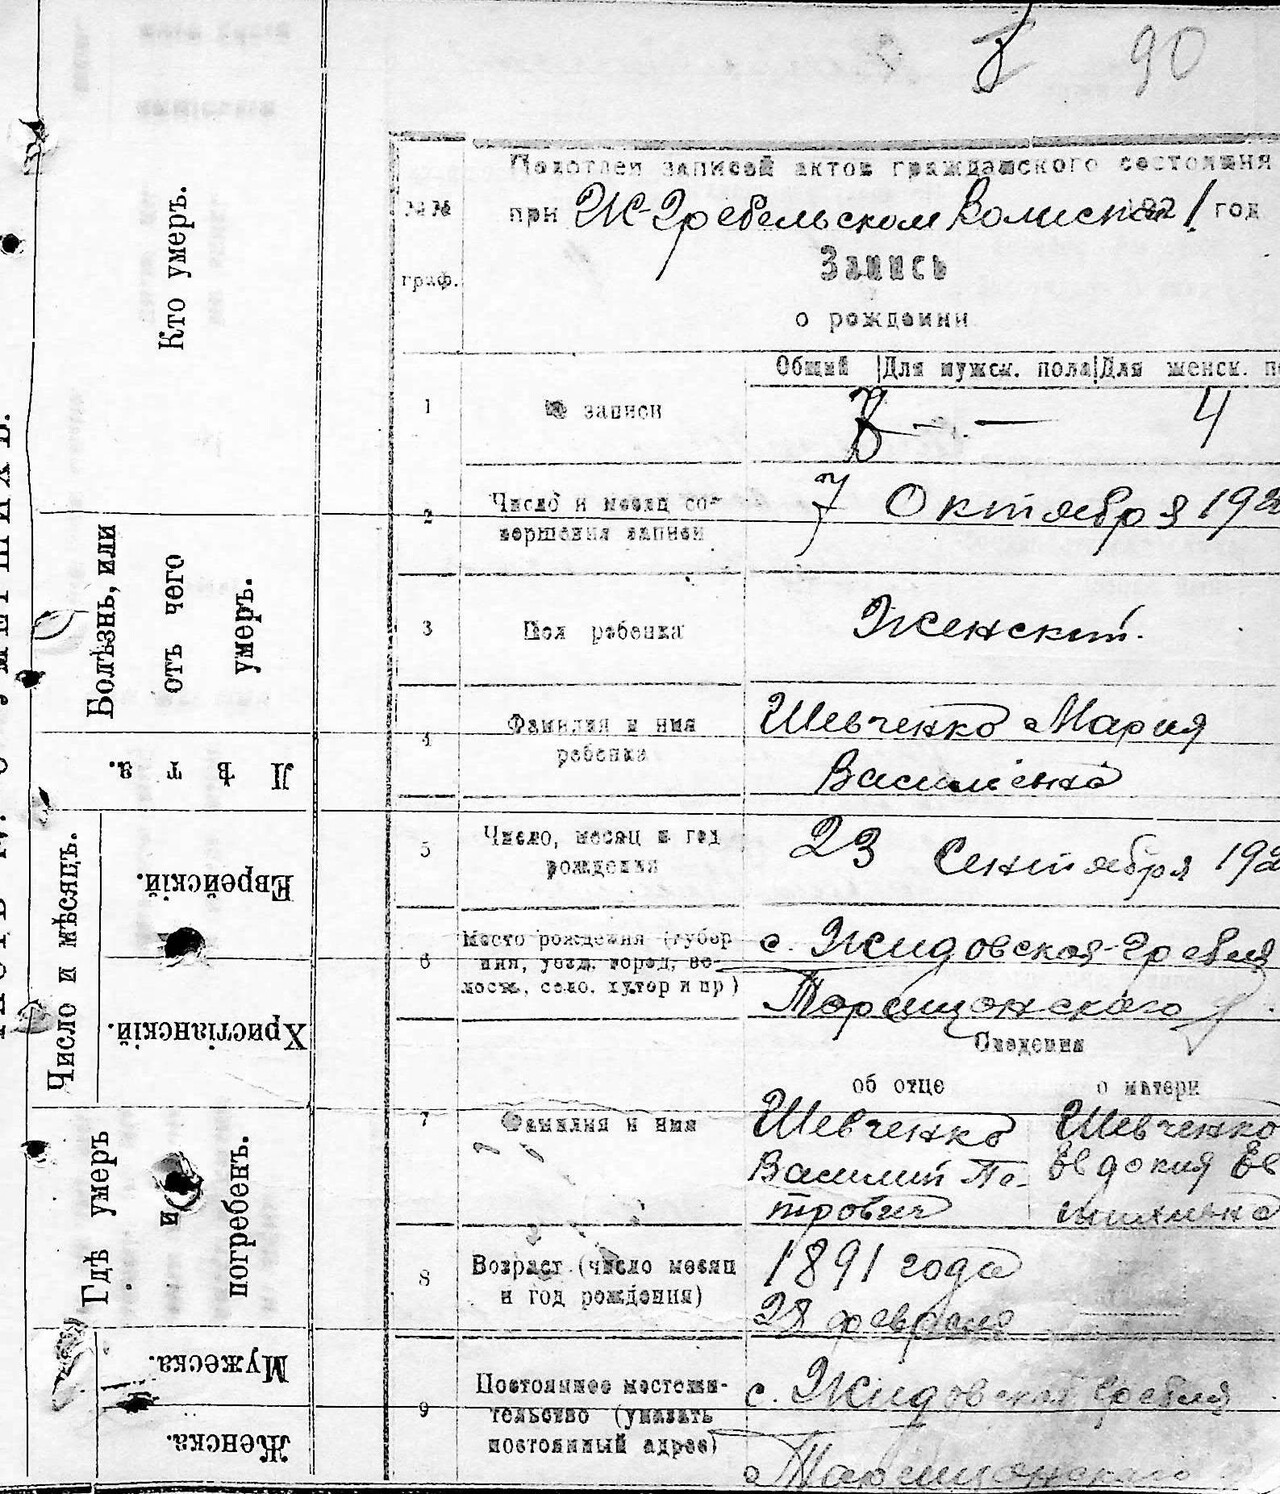 90
Подотдел записей актов гражданского состояния
при Ж-Гребельском Волиспол 1921 год
№№
граф.
Запись
о рождении
Общий Для мужск. пола Для женск. по
1 № записи 8 — — 4
2 Число и месяц со-
вершения записи
7 Октября 192
3 Пол ребенка Женский.
4 Фамилия и имя
ребенка
Шевченко Мария
Васильевна
5 Число, месяц и год
рождения
23 Сентября 192
6 Место рождения (губер
ния, уезд. город, во-
лость, село. хутор и пр)
с. Жидовская-Гребля
Таращанского у.
Сведения
об отце о матери
7 Фамилия и имя
Шевченко Шевченко
Василий Пе- Евдокия Ев
трович
8 Возраст (число месяц
и год рождения)
1891 года
28 февраля
9 Постоянное местожи-
тельство (указать
постоянный адрес)
с. Жидовская Гребля
Таращанского
Кто умеръ.
Болѣзнь, или
отъ чего
умеръ.
Лѣта.
Число и мѣсяцъ.
Еврейскій.
Христіанскій.
Гдѣ умеръ
и
погребенъ.
Мужеска.
Женска.